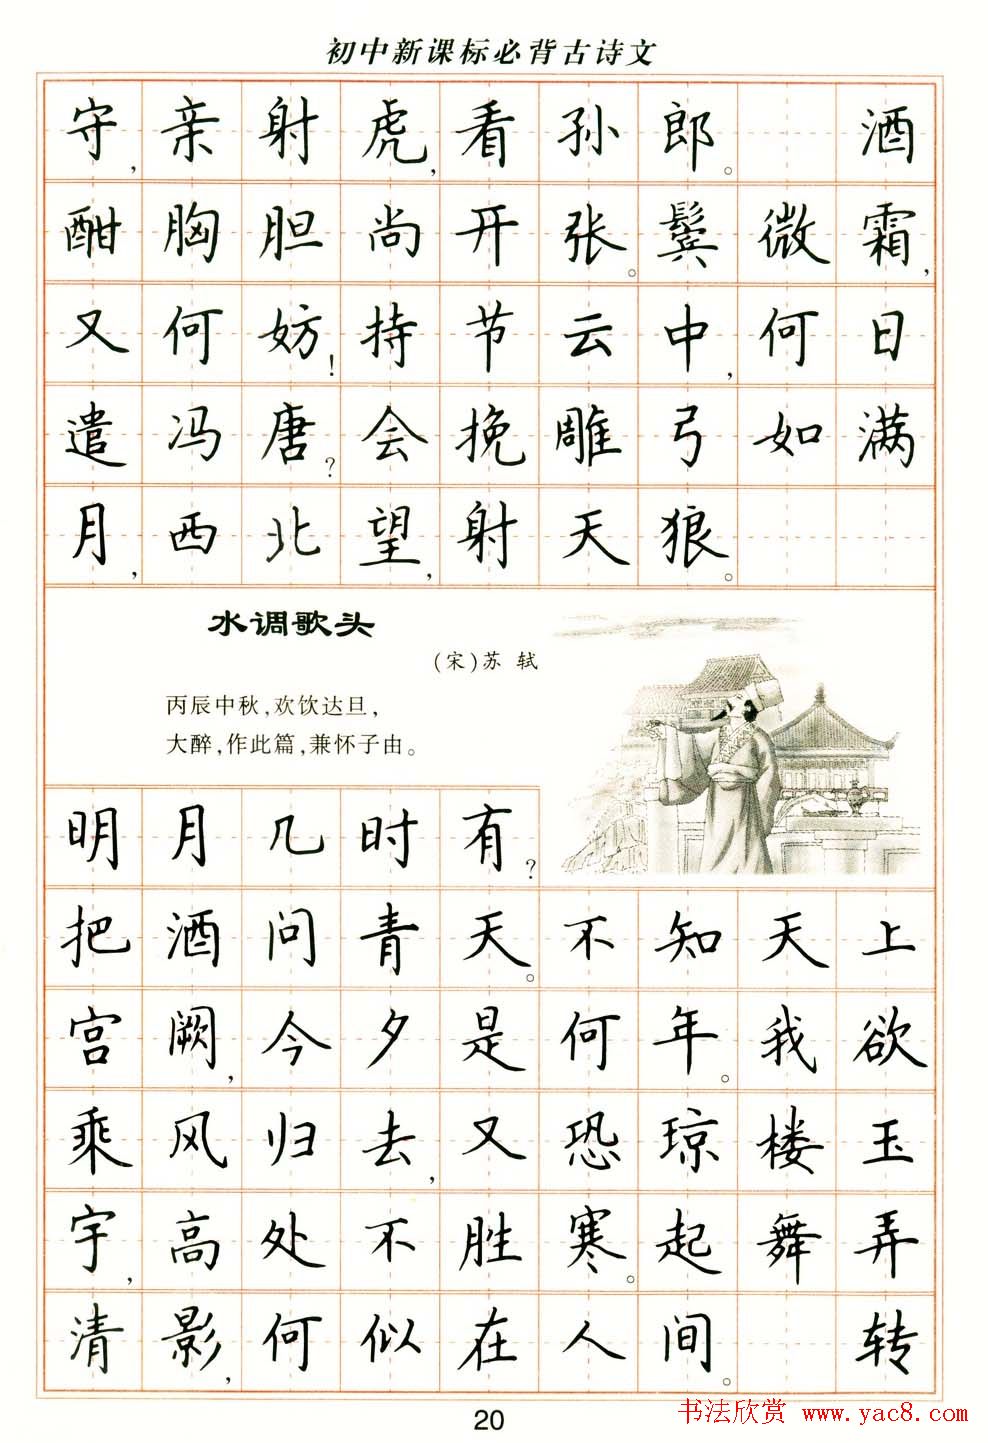 初中新课标必背古诗文
守，亲射虎，看孙郎。 酒
酣胸胆尚开张。鬓微霜，
又何妨！持节云中，何日
遣冯唐？会挽雕弓如满
月，西北望，射天狼。
水调歌头
（宋）苏 轼
丙辰中秋，欢饮达旦，
大醉，作此篇，兼怀子由。
明月几时有？
把酒问青天。不知天上
宫阙，今夕是何年。我欲
乘风归去，又恐琼楼玉
宇，高处不胜寒。起舞弄
清影，何似在人间。 转
20
书法欣赏 www.yac8.com